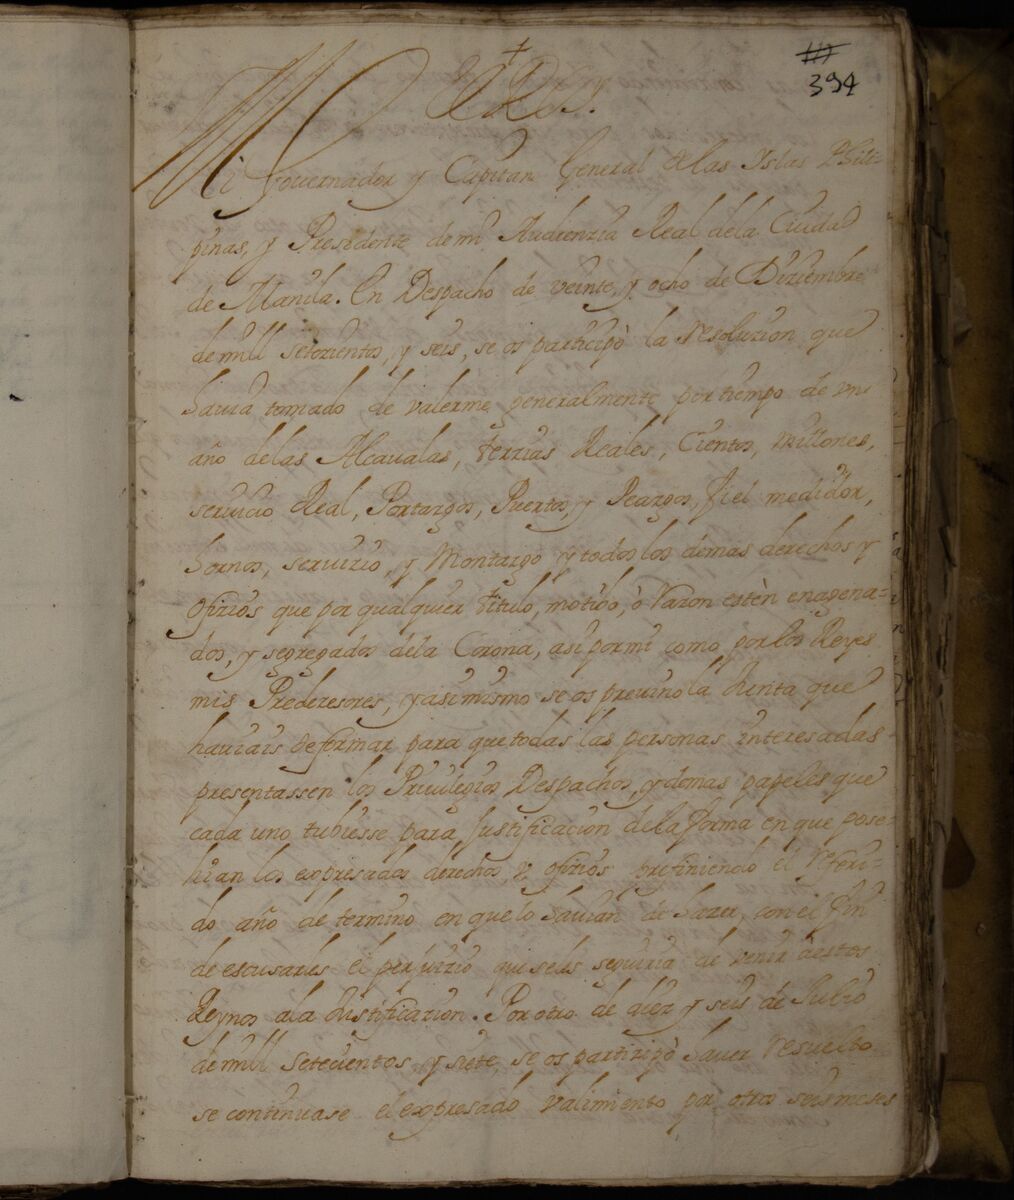 +
394
El Rey.
Mi Governador y Capitan General de las Islas Phili-
pinas, y Presidente de mi Audienzia Real dela Ciudad
de Manila. En Despacho de veinte, y ocho de Diziembre
de mill setezientos, y seis, se os participò la resoluzion que
havia tomado de valerme generalmente por tiempo de un
año delas Alcavalas, terzias Reales, Cientos, Millones,
servicio Real, Portazgos, Puertos, y Peazgos, fiel medidor,
hornos, servizio, y Montazgo y todos los demas derechos y
ofizios que por qualquier titulo, motibo, ò razon estèn enagena-
dos, y segregados dela Corona, asi por mi como por los Reyes
mis Predezesores, y asi mismo se os previno la Junta que
haviais de formar para que todas las personas interesadas
presentassen los Privilegios Despachos, y demas papeles que
cada uno tubiesse para Justificacion dela forma en que pose-
hian los expresados derechos, y ofizios prefiniendo el referi-
do año de termino en que lo havian de hazer, con el fin
de escusarles el perjuizio que seles seguiria de venir aestos
Reynos ala Justificazion. Por otro de diez y seis de Jullio
de mill setecientos, y siete, se os partizipò haver resuelto
se continuase el expresado valimiento por otros seis meses